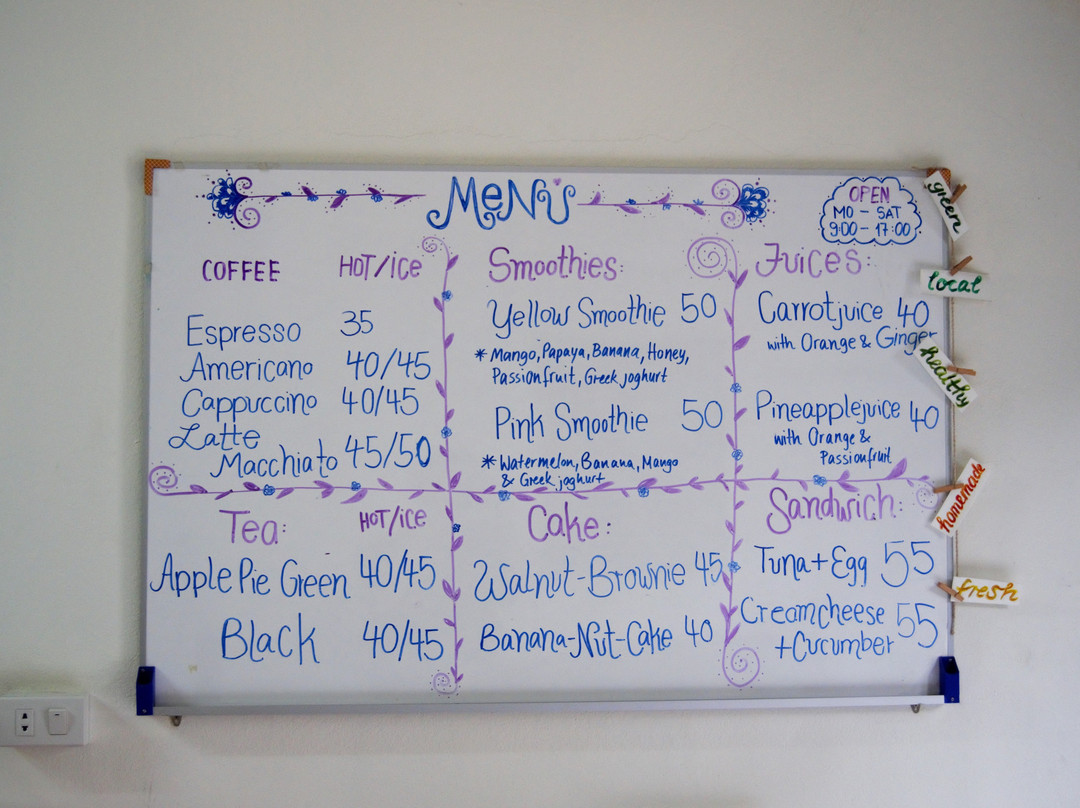 MENÜ
OPEN
MO - SAT
9:00 - 17:00
COFFEE HOT/ICE
Espresso 35
Americano 40/45
Cappuccino 40/45
Latte
Macchiato 45/50
Smoothies:
Yellow Smoothie 50
* Mango, Papaya, Banana, Honey,
Passionfruit, Greek joghurt
Pink Smoothie 50
* Watermelon, Banana, Mango
& Greek joghurt
Juices:
Carrotjuice 40
with Orange & Ginger
Pineapplejuice 40
with Orange &
Passionfruit
Tea: HOT/ICE
Apple Pie Green 40/45
Black 40/45
Cake:
Walnut-Brownie 45
Banana-Nut-Cake 40
Sandwich:
Tuna + Egg 55
Creamcheese
+ Cucumber 55
green
local
healthy
homemade
fresh